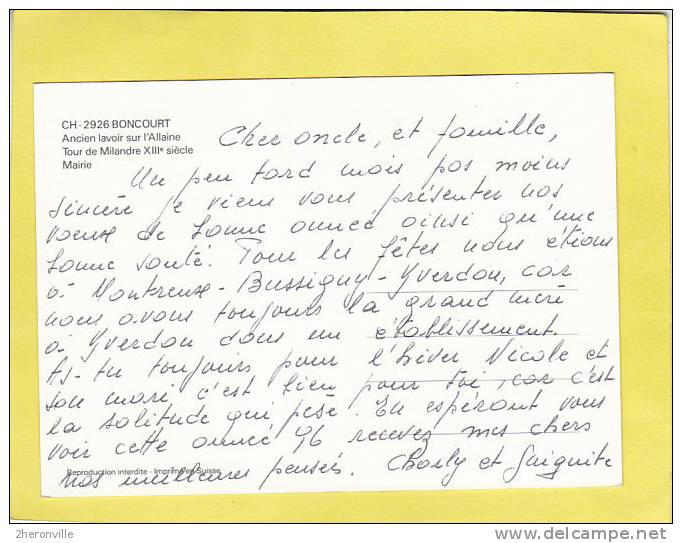 CH-2926 BONCOURT
Ancien lavoir sur l'Allaine
Tour de Milandre XIIIe siècle
Mairie
Cher oncle, et famille,
Un peu tard mais pas moins
sincère je viens vous présenter nos
voeux de bonne année ainsi qu'une
bonne santé. Pour les fêtes nous étions
à Montreux-Bussigny-Yverdon, car
nous avons toujours la grand mère
à Yverdon dans un établissement.
As-tu toujours pour l'hiver Nicole et
son mari c'est bien pour toi, car c'est
la solitude qui pèse. En espérant vous
voir cette année 96 recevez mes chers
nos meilleures pensées. Charly et
Reproduction interdite - Imprimé en Suisse
2heronville
delcampe.net